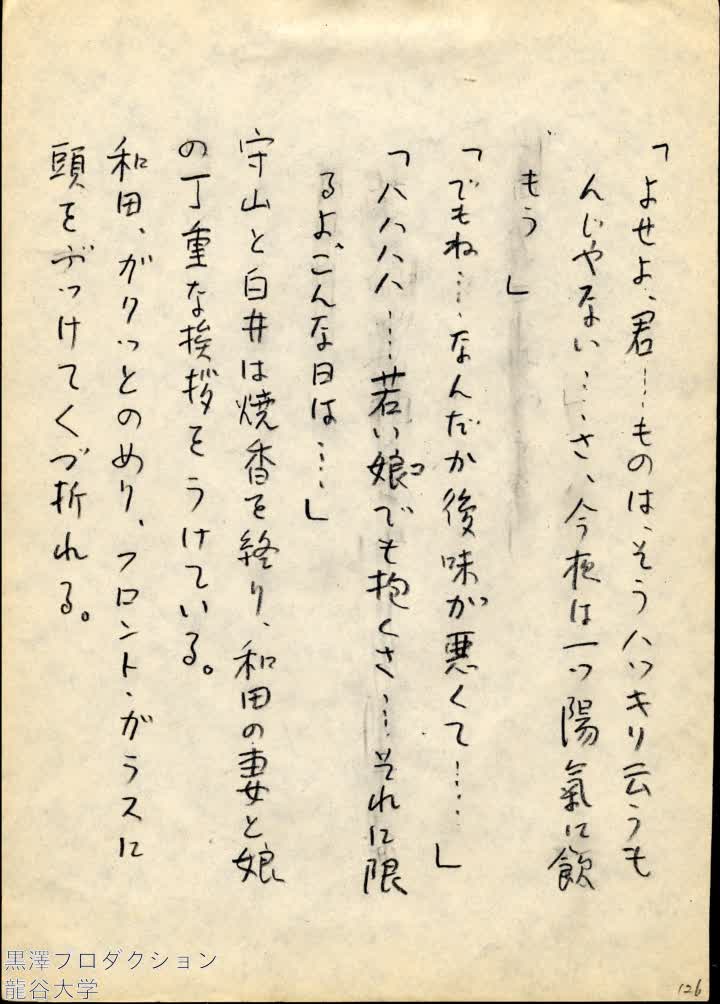 「よせよ、君……ものは、そうハッキリ云うも
んじゃない……さ、今夜は一つ陽氣に飲
もう」
「でもね……なんだか後味が悪くて……」
「ハハハハ……若い娘コでも抱くさ……それに限
るよ、こんな日は……」
守山と白井は焼香を終り、和田の妻と娘
の丁重な挨拶をうけている。
和田、ガクッとのめり、フロント・ガラスに
頭をぶっけてくづ折れる。
126
黒澤プロダクション
龍谷大学